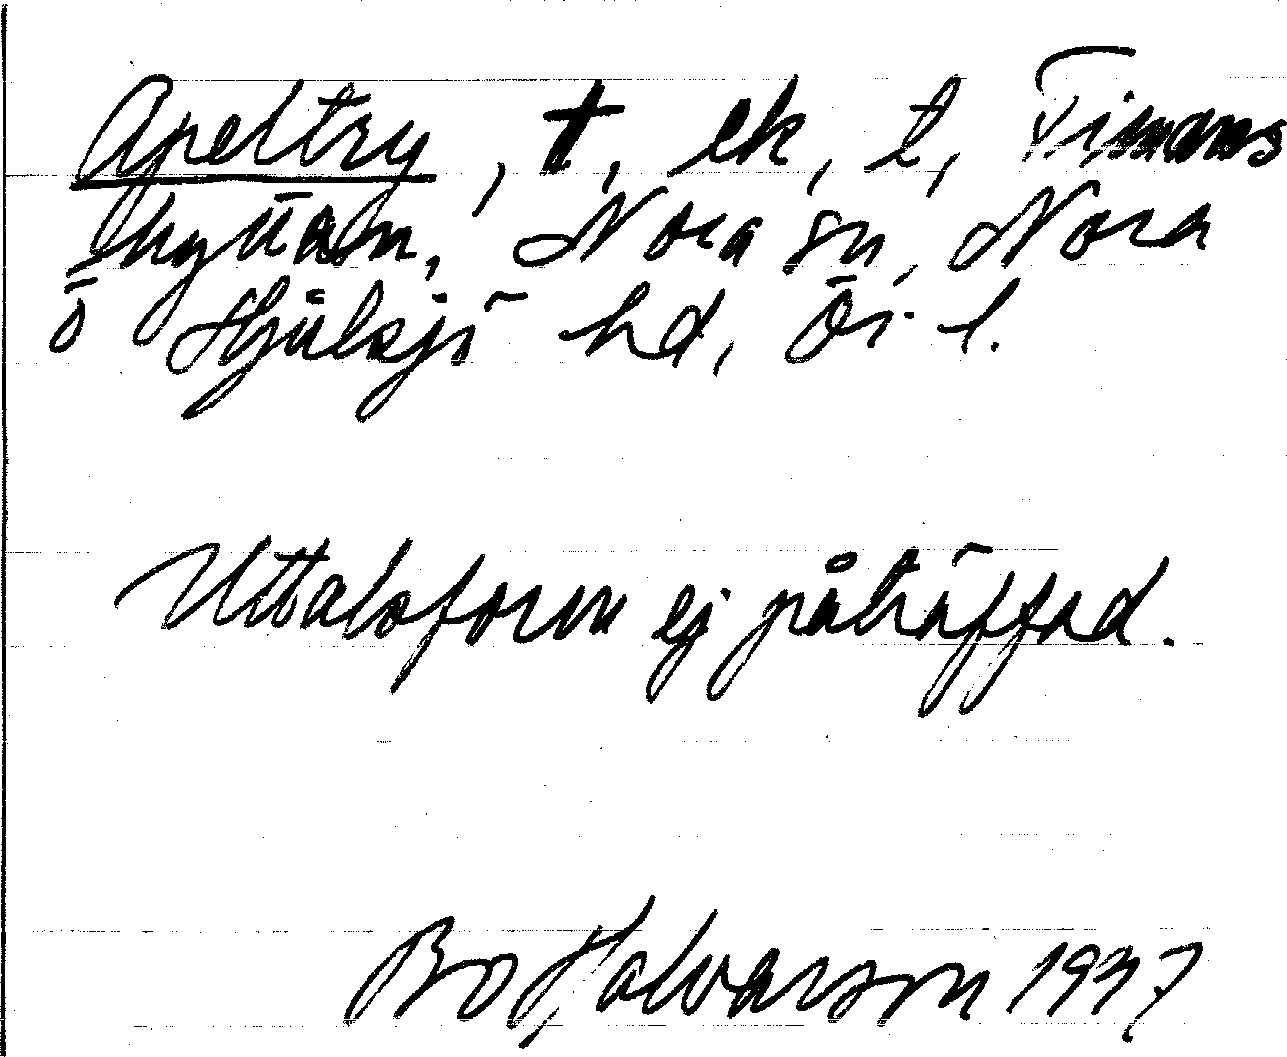 Apeltry, t. ek, t, Timans
hyttan, Nora sn, Nora
o Hjulsjö hd, Ör. l.
Uttalsform ej påträffad.
Bo Halvarson 1937